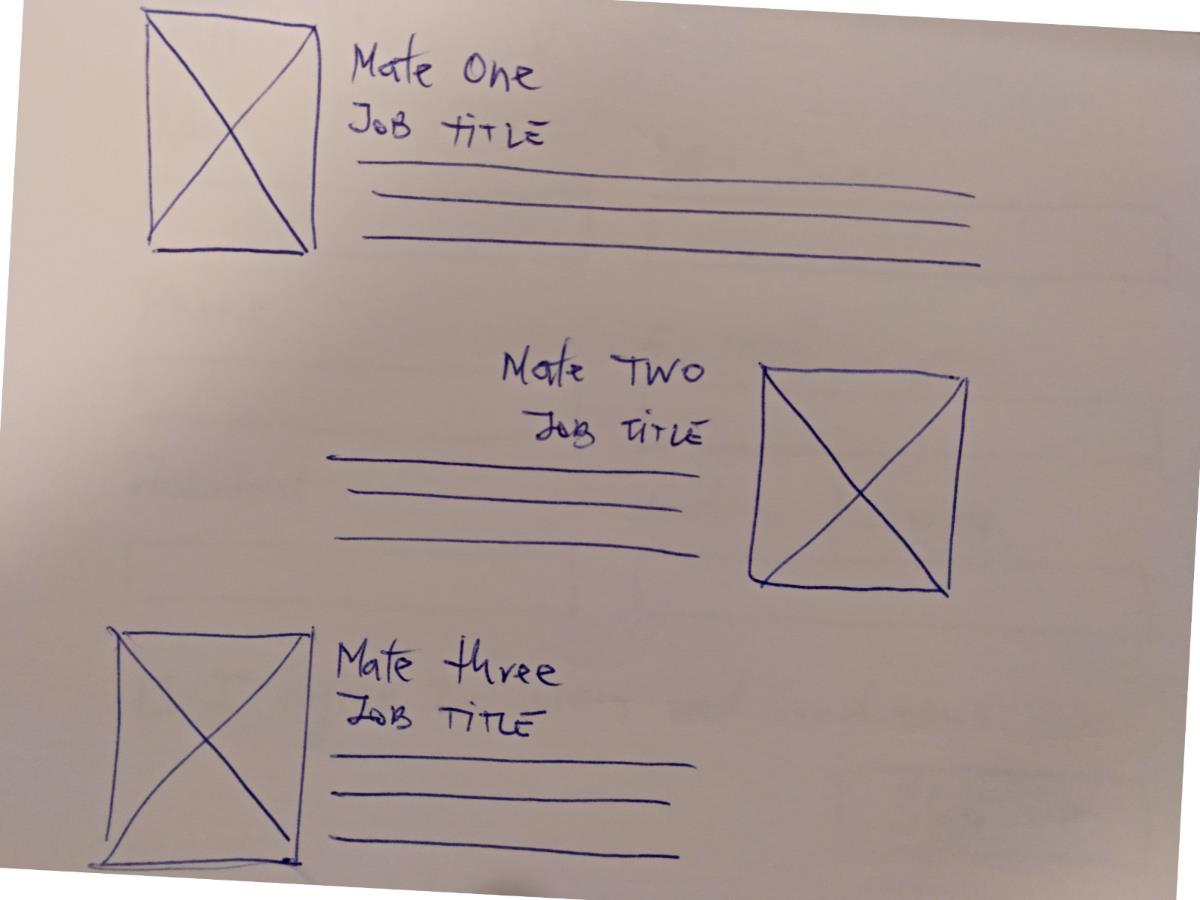 Mate One
JOB TITLE
Mate TWO
JOB TITLE
Mate three
JOB TITLE